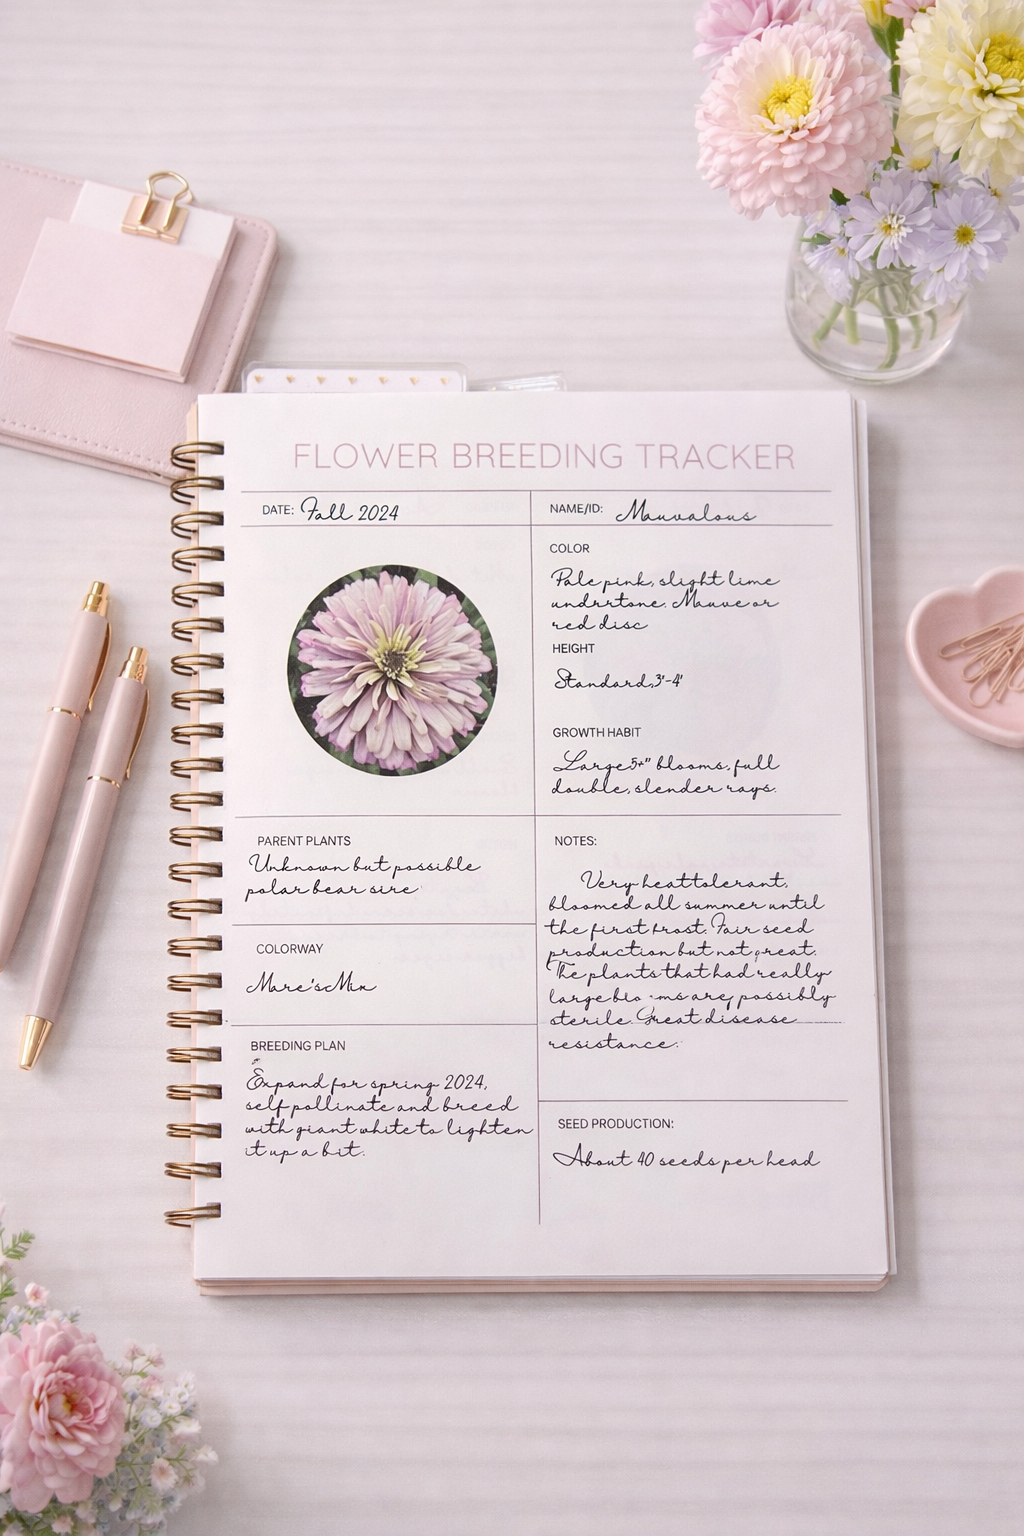 FLOWER BREEDING TRACKER
DATE: Fall 2024
NAME/ID: Mauvalous
COLOR
Pale pink, slight lime
undrrtone. Mauve or
red disc
HEIGHT
Standard, 3'-4'
GROWTH HABIT
Large 5+" blooms, full
double, slender rays.
PARENT PLANTS
Unknown but possible
polar bear sire
COLORWAY
Mare's Mix
BREEDING PLAN
Expand for spring 2024,
self pollinate and breed
with giant white to lighten
it up a bit.
NOTES:
Very heat tolerant,
bloomed all summer until
the first frost. Fair seed
production but not great.
The plants that had really
large are possibly
sterile. Great disease
resistance.
SEED PRODUCTION:
About 40 seeds per head